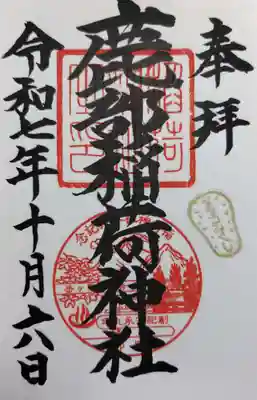 奉拝
鹿部稲荷神社
令和七年十月六日